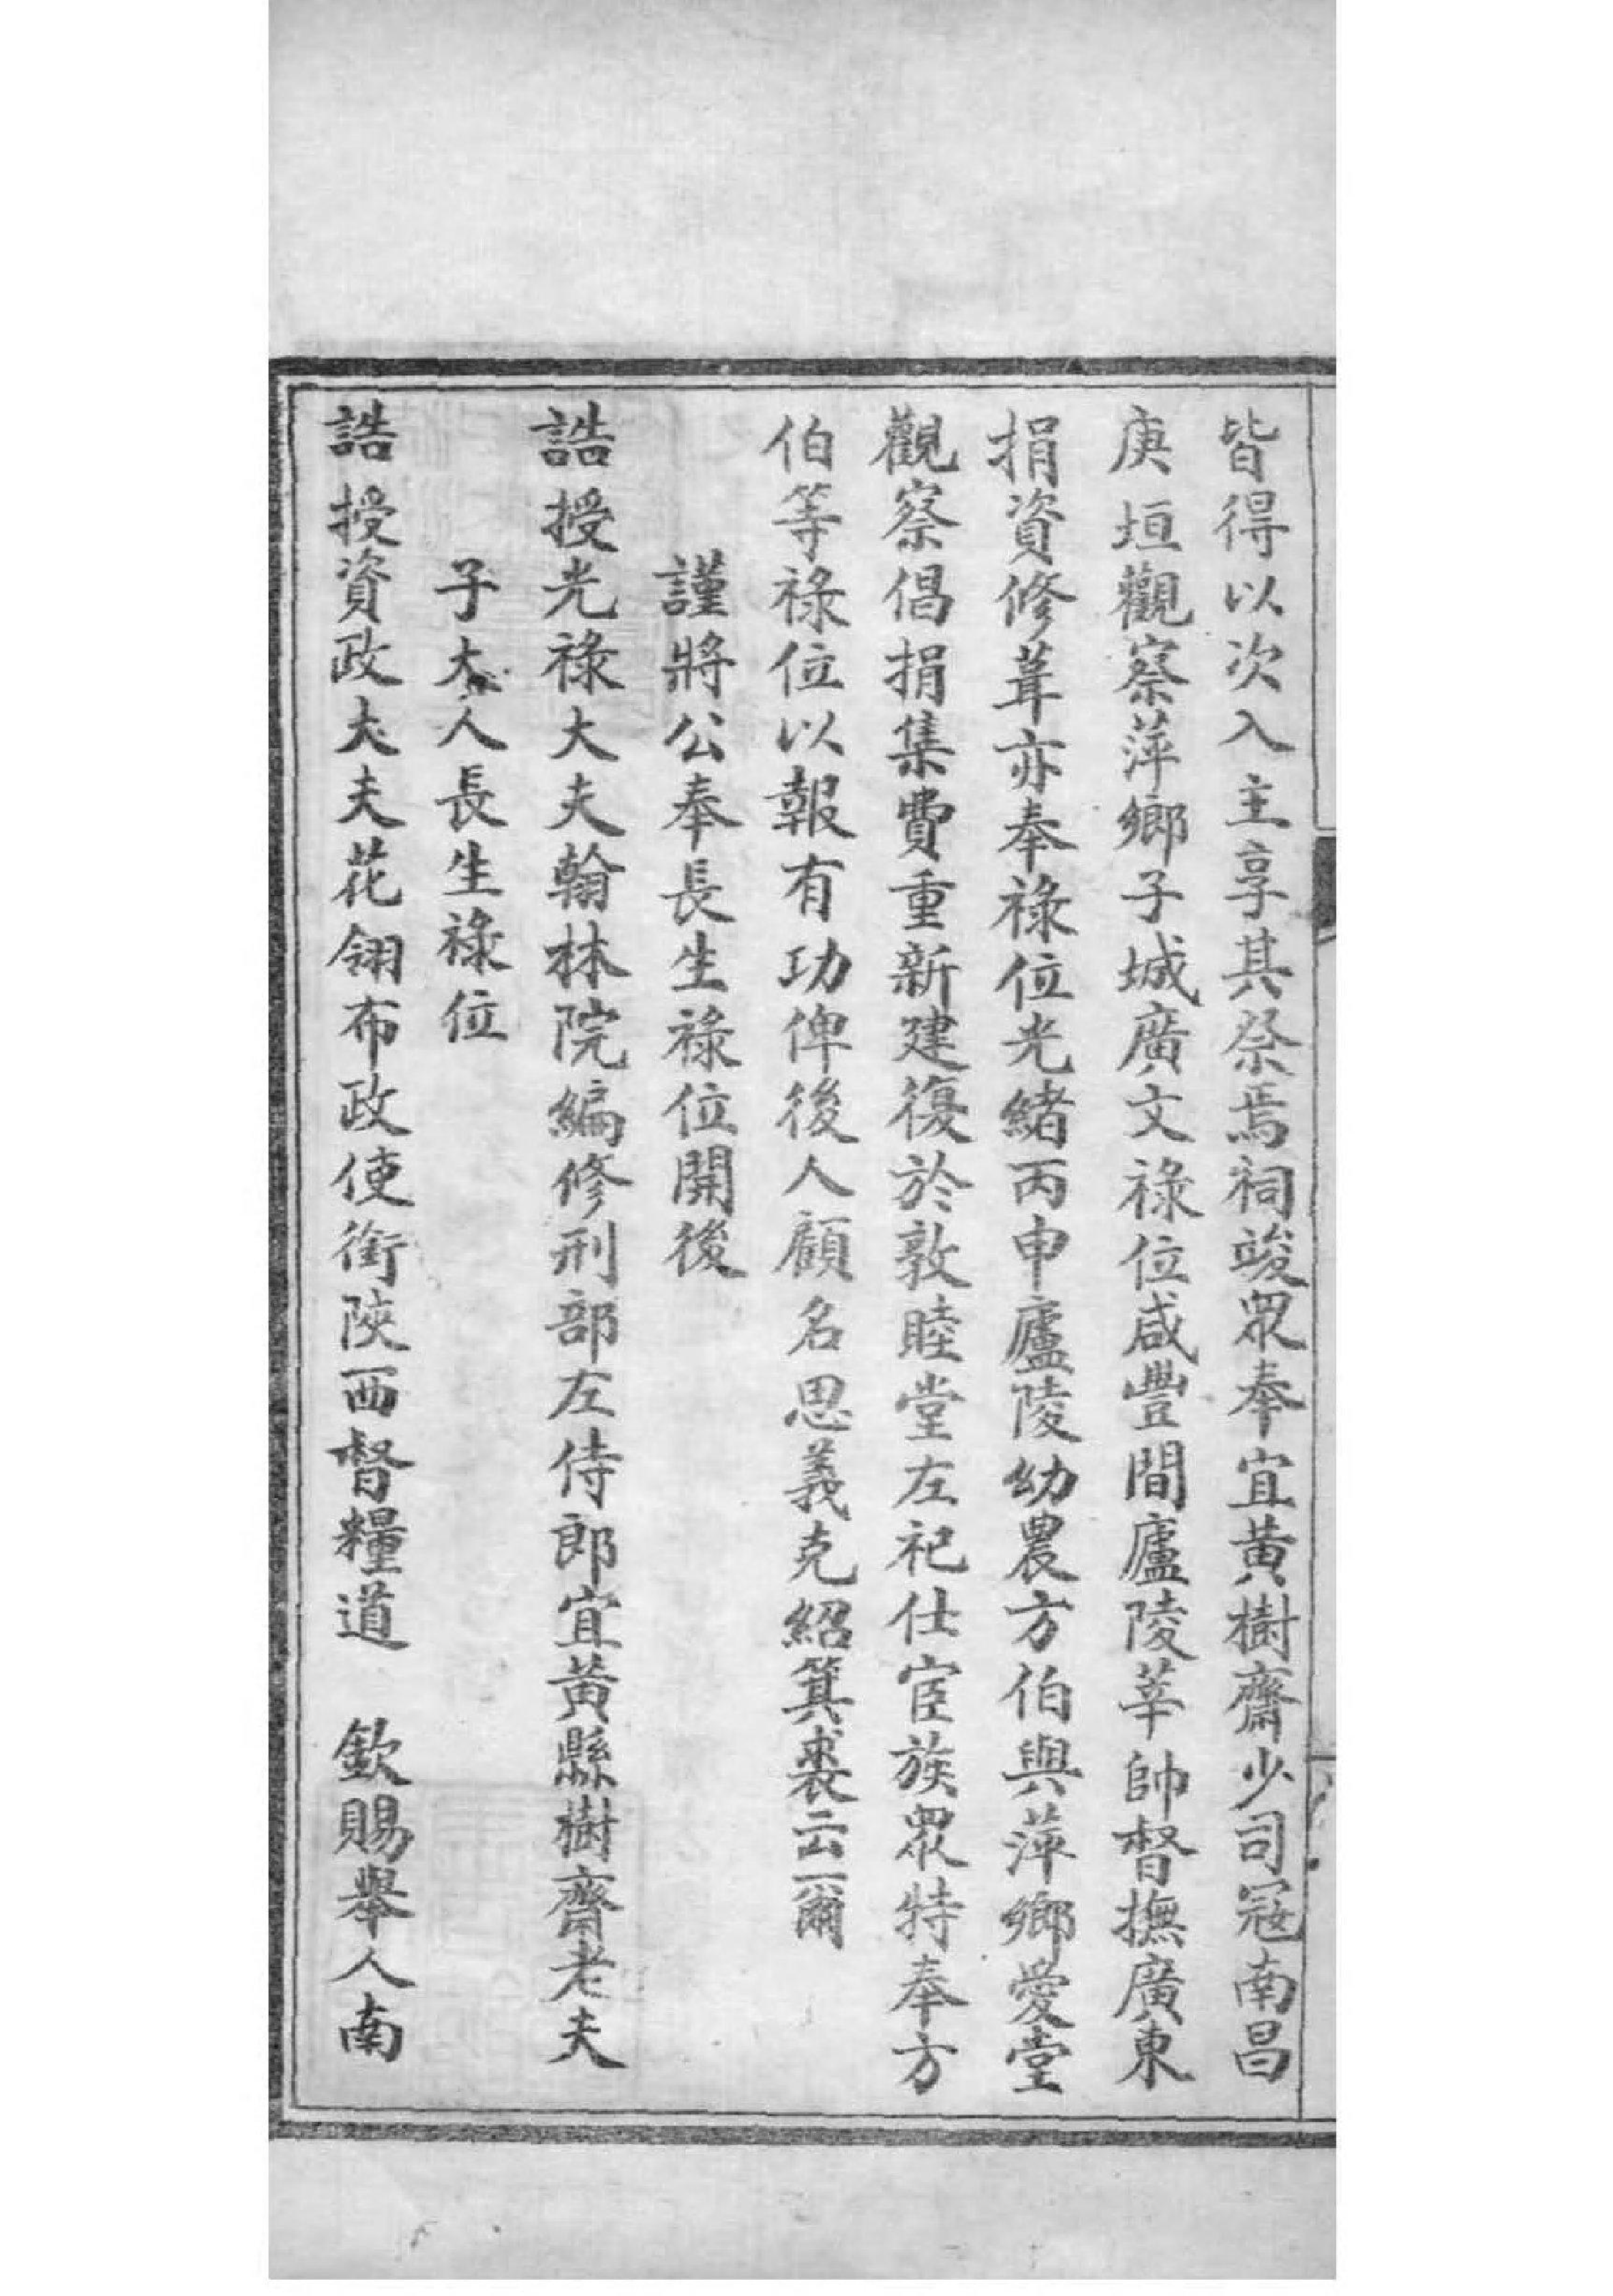 皆得以次入主享其祭焉祠竣眾奉宜黃樹齋少司寇南昌
庚垣觀察萍鄉子城廣文祿位咸豐間廬陵莘帥督撫廣東
捐資修葺亦奉祿位光緒丙申廬陵幼農方伯與萍鄉愛堂
觀察倡捐集費重新建復於敦睦堂左祀仕宦族眾特奉方
伯等祿位以報有功俾後人顧名思義克紹箕裘云爾
謹將公奉長生祿位開後
誥授光祿大夫翰林院編修刑部左侍郎宜黃縣樹齋老夫
子大人長生祿位
誥授資政大夫花翎布政使銜陝西督糧道 欽賜舉人南